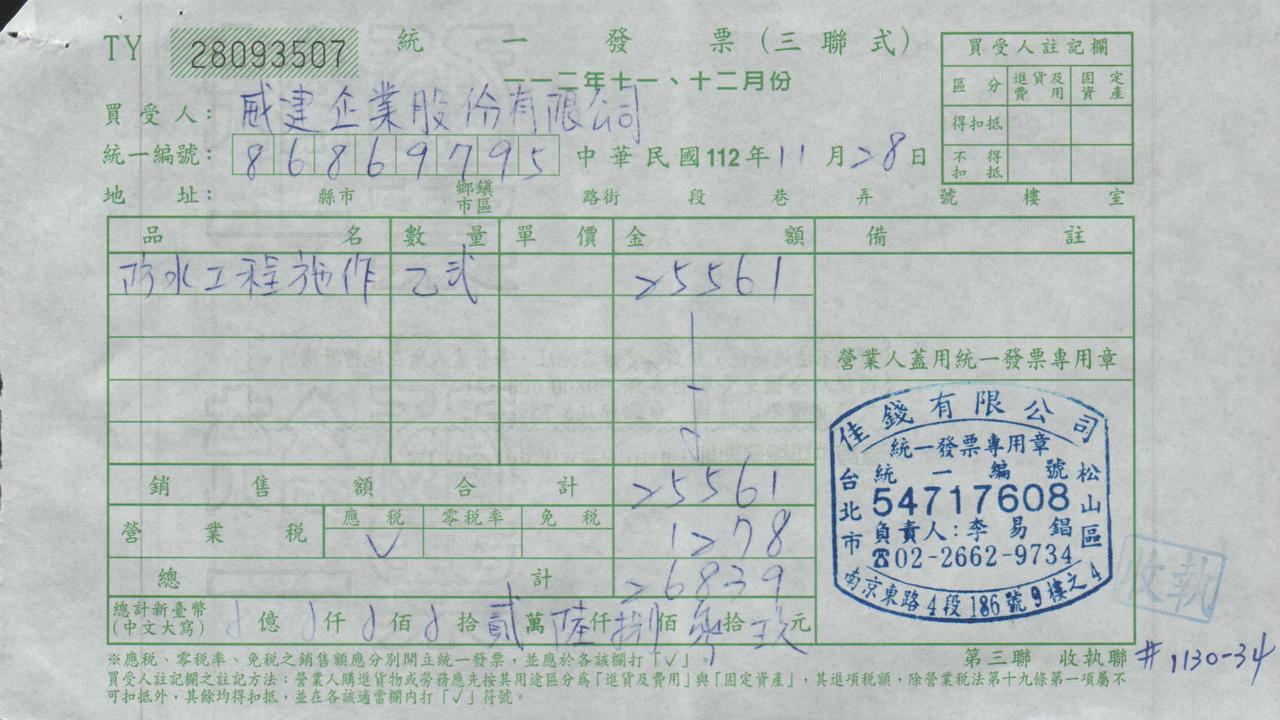 TY 28093507 統一發票(三聯式)
一一二年十一、十二月份
買受人註記欄
區分 進貨及費用 固定資產
得扣抵
不得扣抵
買受人: 威建企業股份有限公司
統一編號: 86869795 中華民國112年11月28日
地址: 縣市 鄉鎮市區 路街 段 巷 弄 號 樓 室
品名 數量 單價 金額 備註
防水工程施作 乙式 25561
營業人蓋用統一發票專用章
銷售額合計 25561
營業稅 應稅 零稅率 免稅
✓ 1278
總計 26839
總計新臺幣(中文大寫) 億 仟 佰 拾 貳萬 陸仟 捌佰 拾 玖元
佳錢有限公司
統一發票專用章
統一編號
54717608
負責人:李易錩
☎02-2662-9734
台北市 松山區
南京東路4段186號9樓之4
收執
※應稅、零稅率、免稅之銷售額應分別開立統一發票,並應於各該欄打「✓」。
第三聯 收執聯 #1130-34
買受人註記欄之註記方法:營業人購進貨物或勞務應先按其用途區分為「進貨及費用」與「固定資產」,其進項稅額,除營業稅法第十九條第一項屬不
可扣抵外,其餘均得扣抵,並在各該適當欄內打「✓」符號。